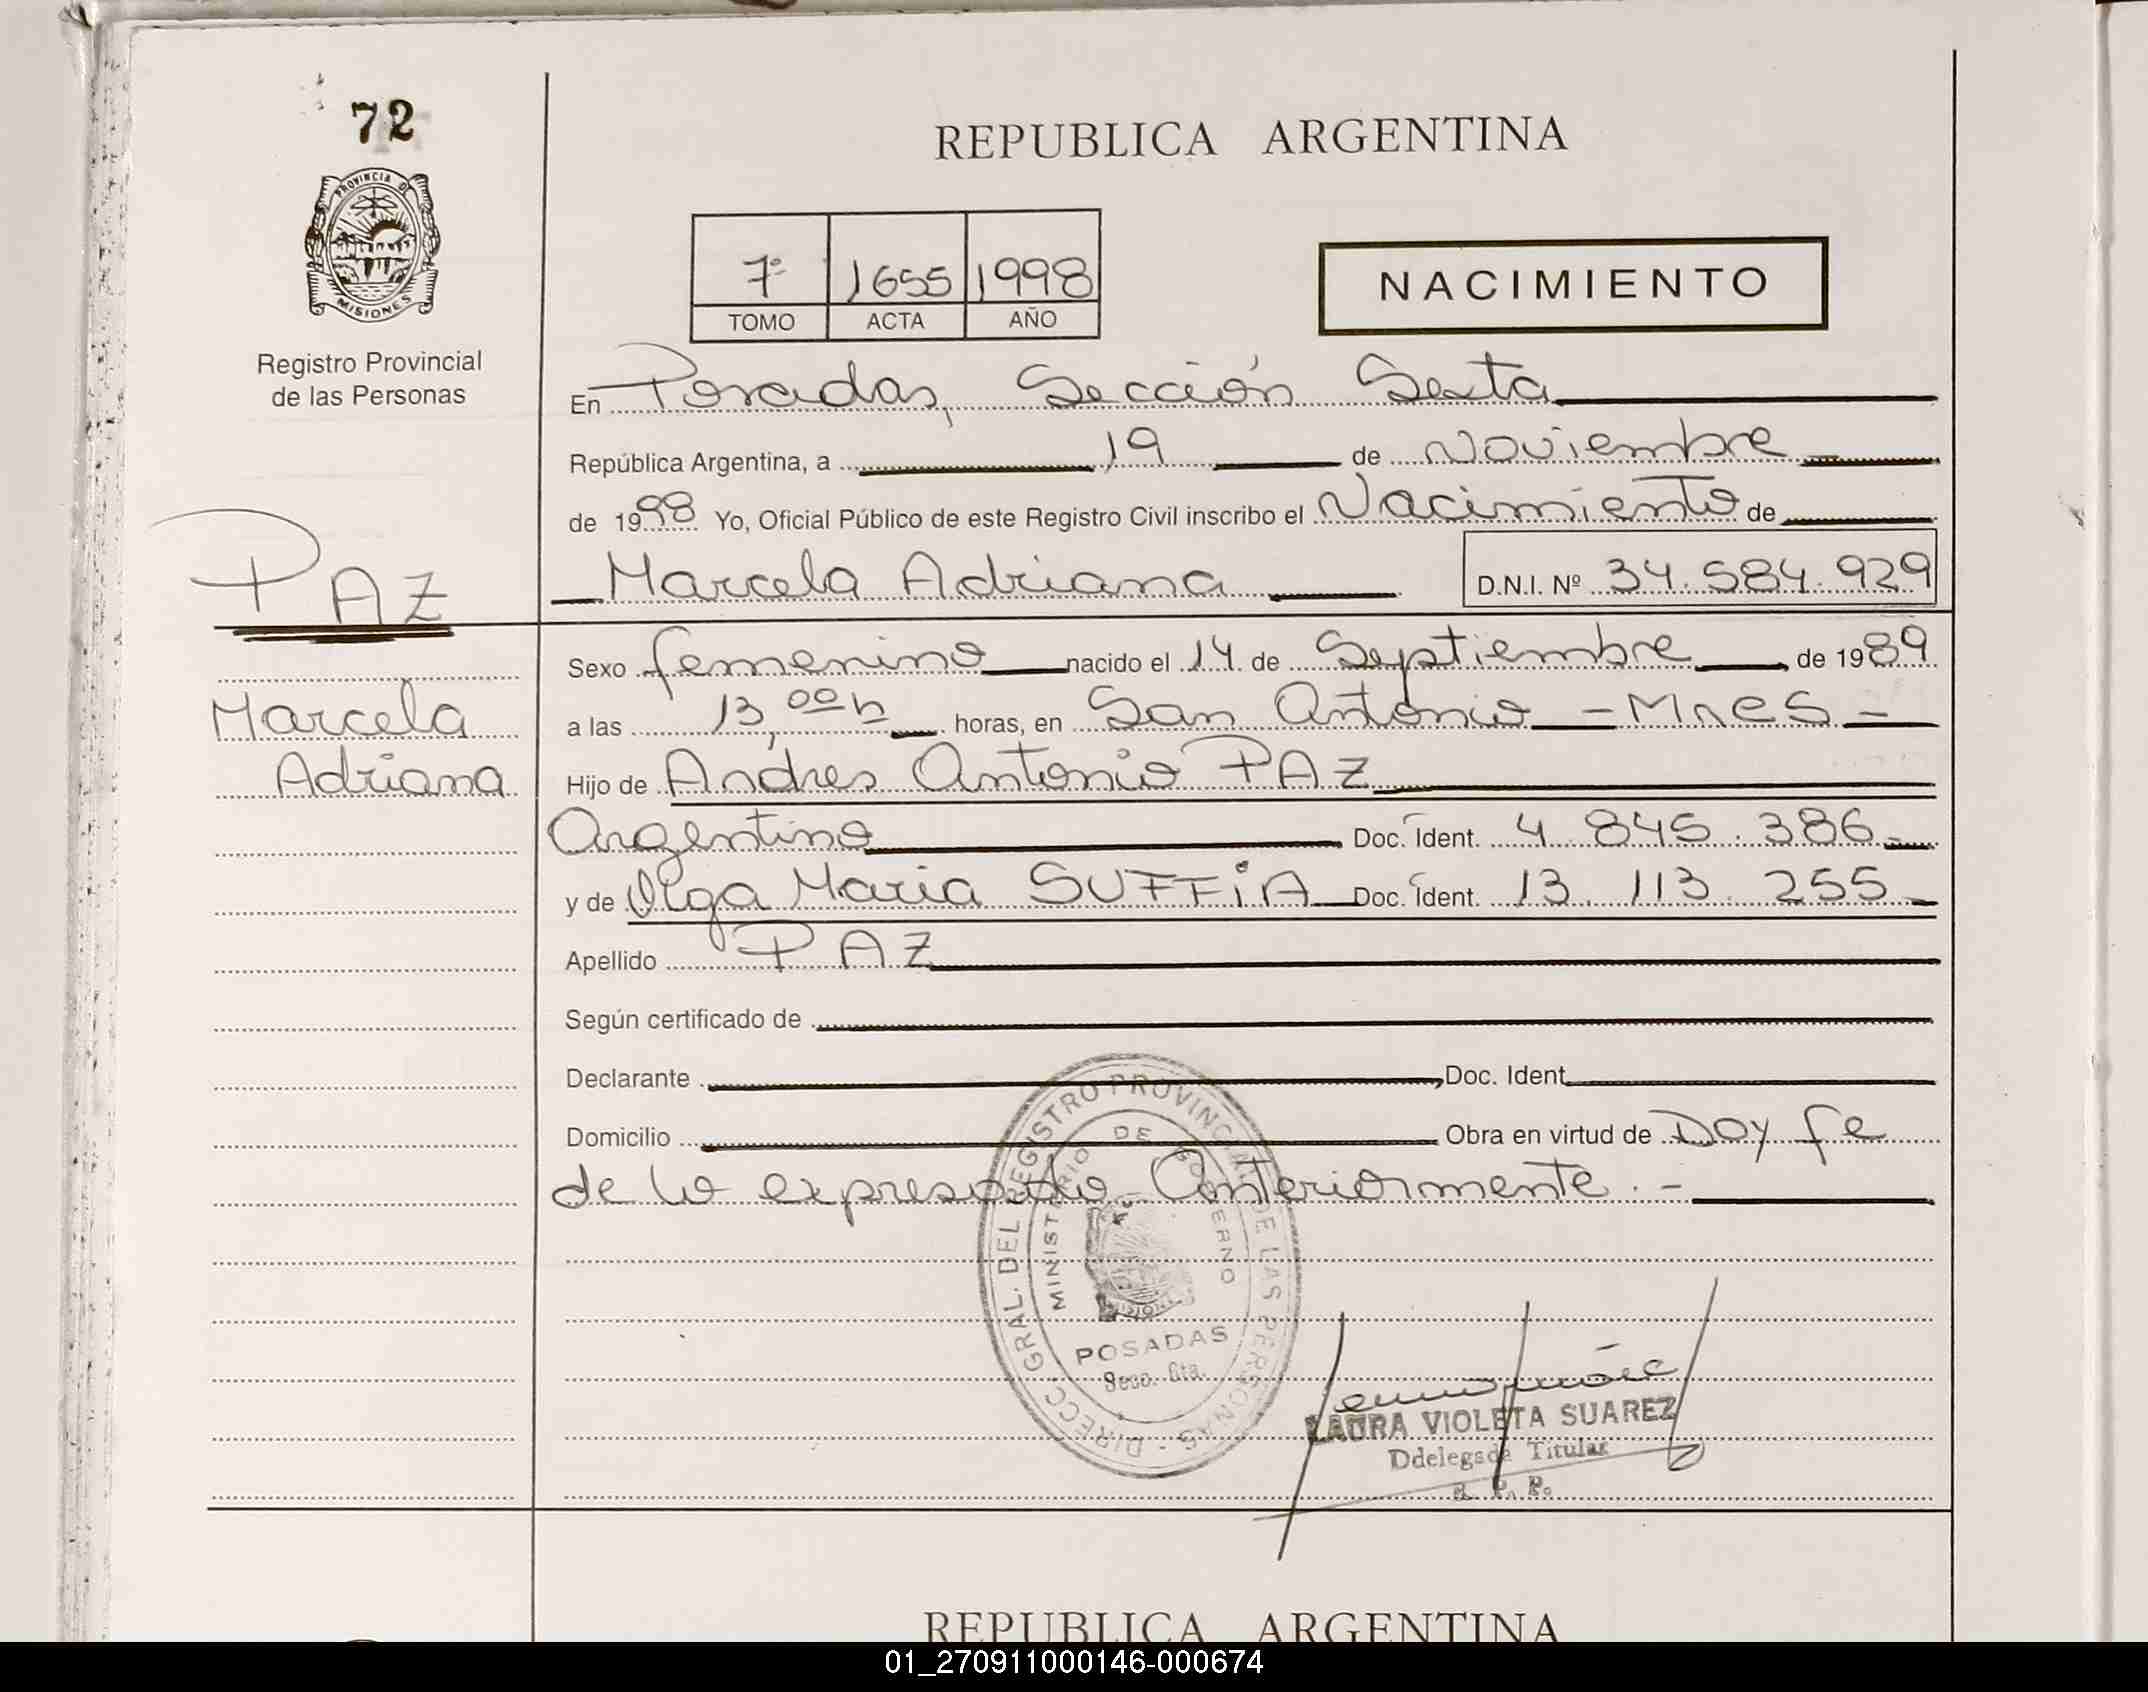 72
PROVINCIA D
MISIONES
Registro Provincial
de las Personas
PAZ
Marcela
Adriana
REPUBLICA ARGENTINA
7º 1655 1998
TOMO ACTA AÑO
NACIMIENTO
En Posadas, Sección Sexta
República Argentina, a 19 de Noviembre
de 1998 Yo, Oficial Público de este Registro Civil inscribo el Nacimiento de
Marcela Adriana D.N.I. Nº 34.584.929
Sexo femenino nacido el 14 de Septiembre de 1989
a las 13,00 h horas, en San Antonio - Mnes -
Hijo de Andres Antonio PAZ
Argentino Doc. Ident. 4.845.386
y de Olga Maria SUFFiA Doc. Ident. 13.113.255
Apellido PAZ
Según certificado de
Declarante Doc. Ident.
Domicilio Obra en virtud de Doy fe
de lo expresado Anteriormente.-
DIRECC. GRAL. DEL REGISTRO PROVINCIAL DE LAS PERSONAS -
MINISTERIO DE GOBIERNO
POSADAS
Secc. 6ta.
LAURA VIOLETA SUAREZ
Ddelegada Titular
R. P. P.
REPUBLICA ARGENTINA
01_270911000146-000674